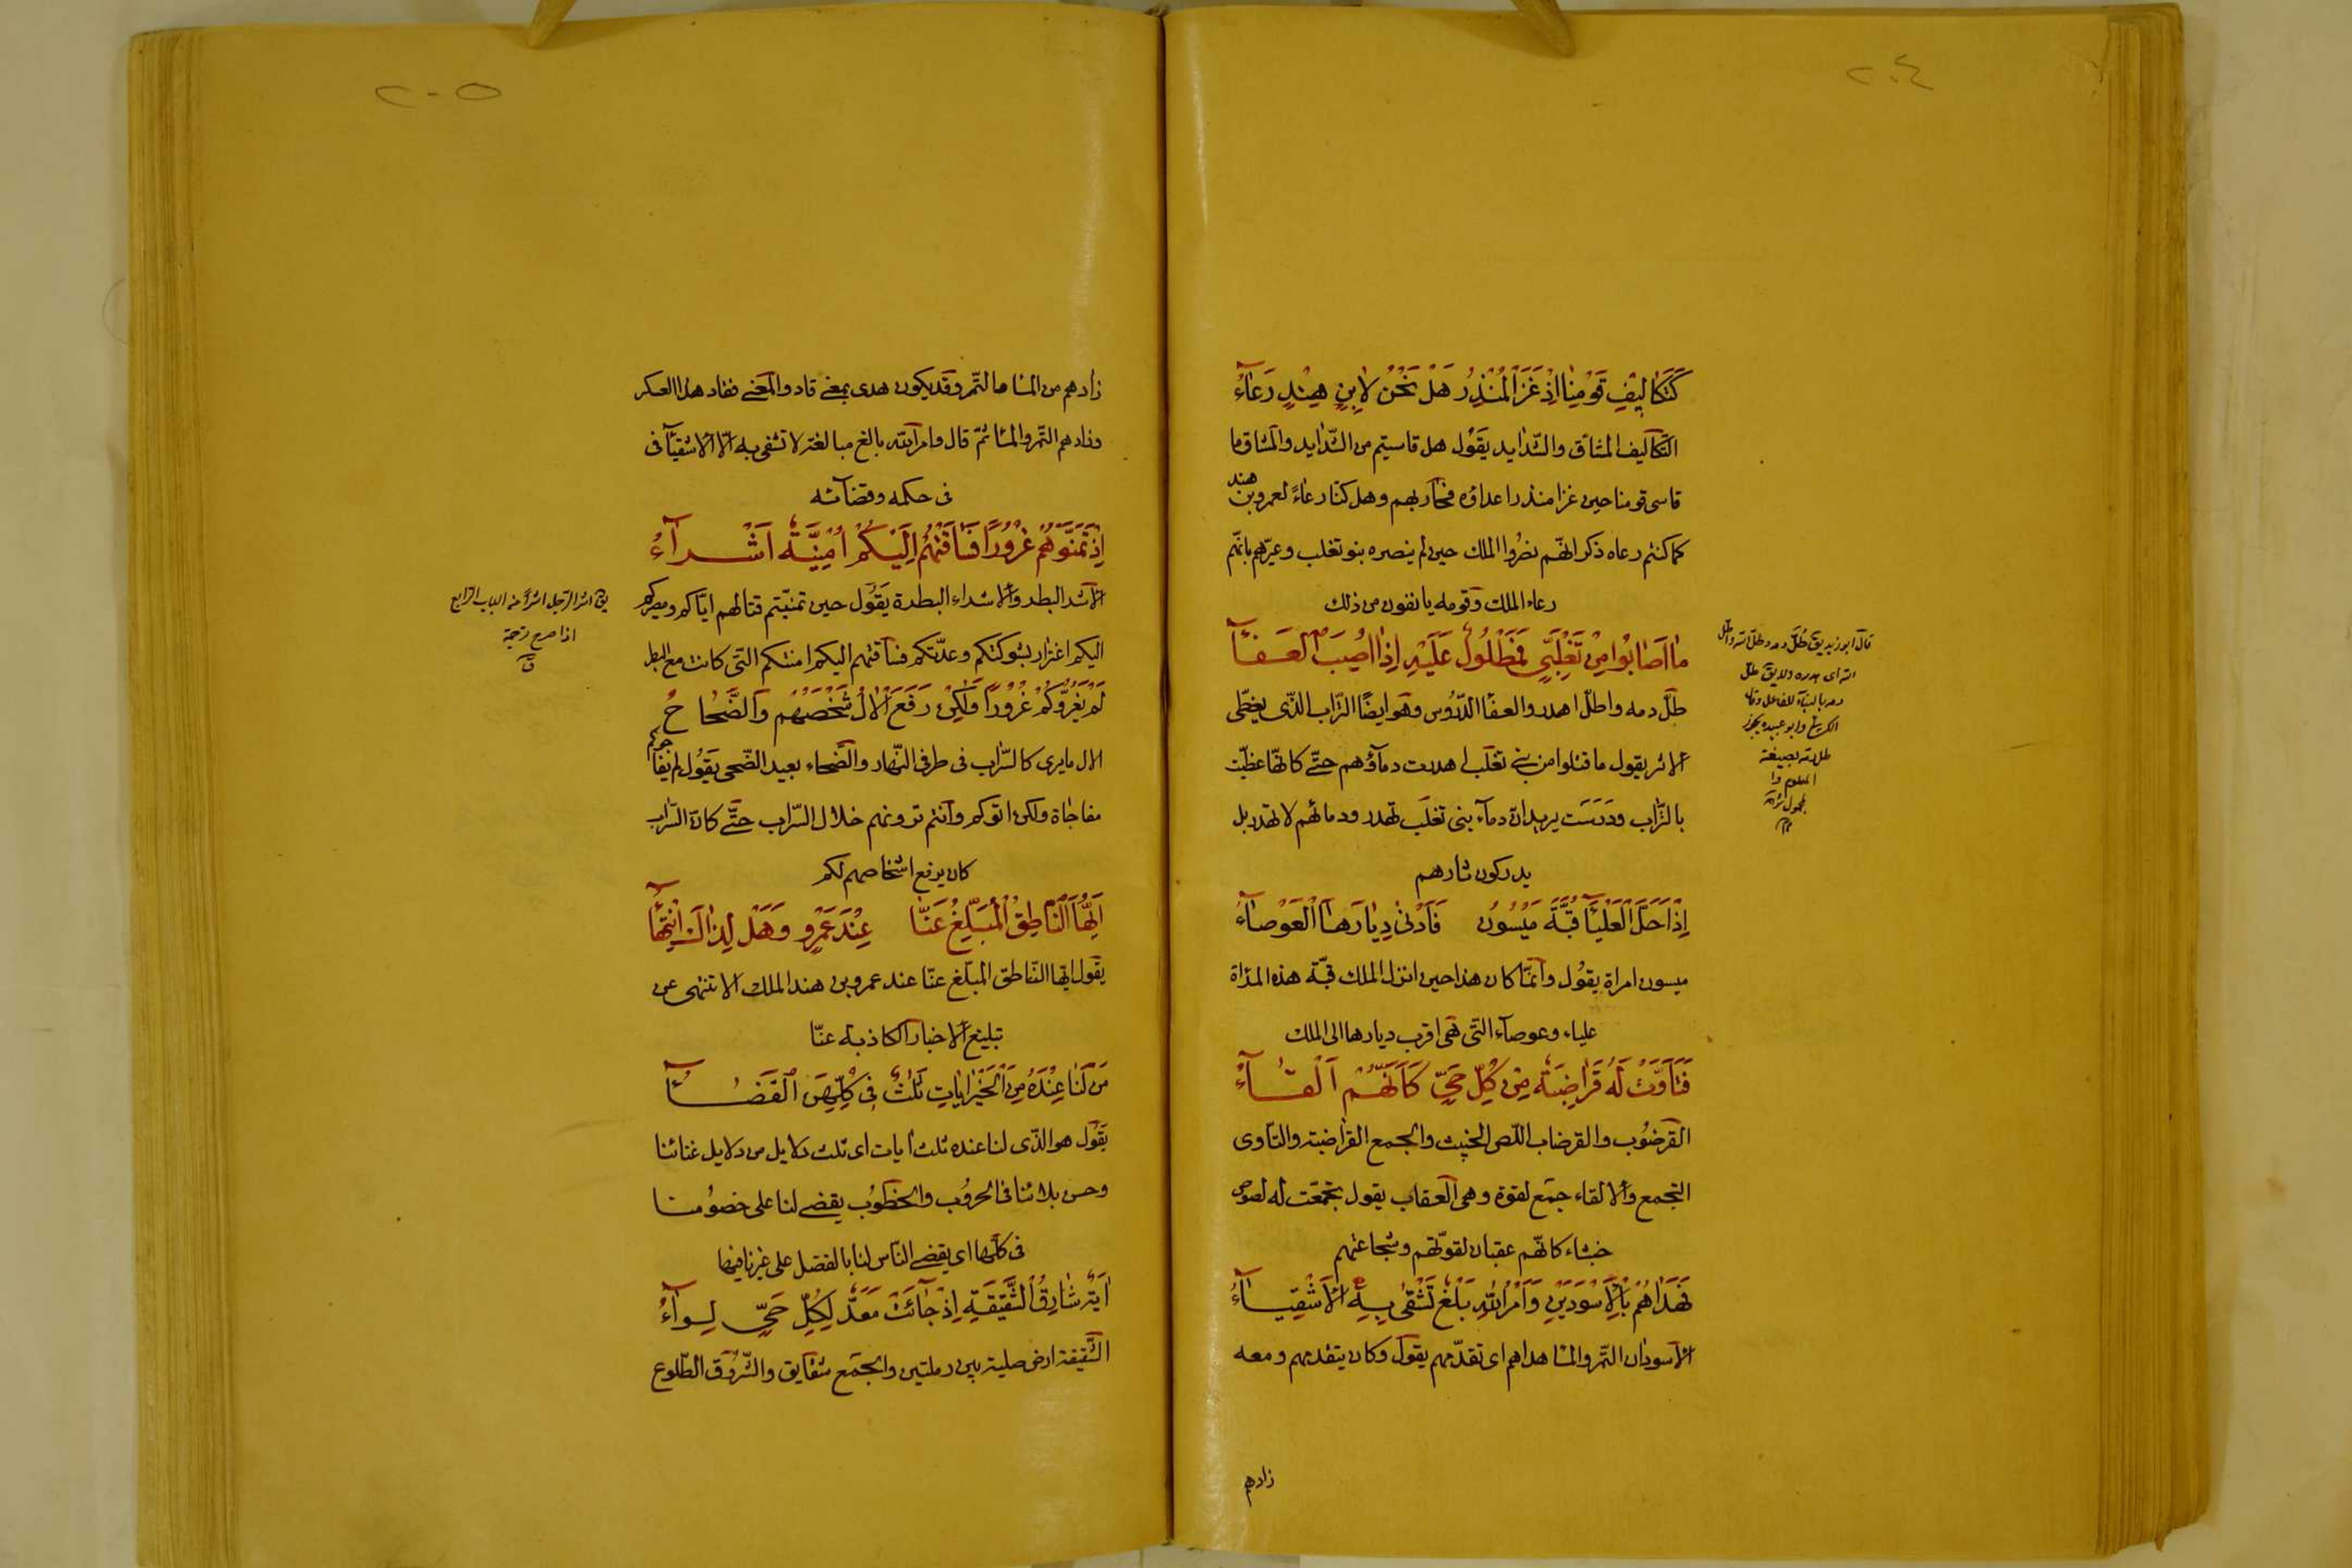 ٢٠٤
كَتَكَالِيفِ قَوْمِنَا اِذْ غَزَا الْمُنْذِرُ هَلْ نَحْنُ لِابْنِ هِنْدٍ رَعَآءُ
التكاليف المشاق والشدايد يقول هل قاسيتم من الشدايد والمشاق ما
قاسى قومنا حين غزا منذر اعداؤه فحاربهم وهل كنا رعاءً لعمرو بن هند
كما كنتم رعاه ذكر انهم نصروا الملك حين لم ينصره بنو تغلب وعيرهم بانهم
رعاء الملك وقومه يانفون من ذلك
مَا اَصَابُوا مِنْ تَغْلِبِيٍّ فَمَطْلُولٌ عَلَيْهِ اِذَا اُصِيبَ الْعَفَآءُ
طلّ دمه واطلّ اهدر والعفا الدروس وهو ايضًا التراب الذى يغطى
الاثر يقول ما قتلوا من بنى تغلب اهدرت دماؤهم حتى كانها غطيت
بالتراب ودرست يريد ان دماء بنى تغلب تهدر ودمائهم لا تهدر بل
يدركون ثارهم
اِذَا حَلَّ الْعَلْيَآ قُبَّةَ مَيْسُونَ فَاَدْنٰى دِيَارَهَا الْعَوْصَآءُ
ميسون امراة يقول وانما كان هذا حين انزل الملك قبّة هذه المراة
علياء وعوصآء التى هى اقرب ديارها الى الملك
فَتَاَوَّتْ لَهُ قَرَاضِبَةٌ مِنْ كُلِّ حَيٍّ كَاَنَّهُمْ اَلْقَآءُ
القرضوب والقرضاب اللص الخبيث والجمع القراضبة والتاوى
التجمع والالقاء جمع لقوة وهى العقاب يقول تجمعت له لصوص
خبثاء كانهم عقبان لقوتهم وشجاعتهم
فَهَدَاهُمْ بِالْاَسْوَدَيْنِ وَاَمْرُ اللّٰهِ بَلْغٌ تَشْقٰى بِهِ الْاَشْقِيَآءُ
الاسودان التمر والماء هداهم اى تقدمهم يقول وكان يتقدمهم ومعه
زادهم
قال ابو زيد يق طُلّ دمه وطلّه الله واطلّه
الله اى هدره ولا يق طلّ
دمه بالبناء للفاعل وقال
الكسائى وابو عبيده يجوز
٢٠٥
زادهم من الماء والتمر وقد يكون هدى بمعنى قاد والمعنى فقاد هذا العسكر
وزادهم التمر والماء ثمّ قال وامر الله بالغ مبالغه لا تشقى به الّا الاشقيآء فى
فى حكمه وقضائه
اِذْ تَمَنَّوْنَهُمْ غُرُورًا فَسَاقَتْهُمْ اِلَيْكُمْ اُمْنِيَّةٌ اَشْرَآءُ
الاشر البطر والاشراء البطرة يقول حين تمنيتم قتالهم اياكم ومصيركم
اليكم اغترار بشوكتكم وعدّتكم فساقتهم اليكم امنيتكم التى كانت مع البطر
لَمْ يَغُرُّوكُمْ غُرُورًا وَلٰكِنْ رَفَعَ الْاٰلُ شَخْصَهُمْ وَالضَّحَاءُ
الال مايرى كالسراب فى طرفى النهار والضحاء بعيد الضحى يقول لم يفاجؤكم
مفاجاة ولكن اتوكم وانتم ترونهم خلال السراب حتّى كان السراب
كان يرفع اشخاصهم لكم
اَيُّهَا النَّاطِقُ الْمُبَلِّغُ عَنَّا عِنْدَ عَمْرٍو وَهَلْ لِذَاكَ اِنْتِهَآءُ
يقول ايها الناطق المبلّغ عنّا عند عمرو بن هند الملك الا تنتهى عن
تبليغ الاخبار الكاذبة عنّا
مَنْ لَنَا عِنْدَهُ مِنَ الْخَيْرِ اٰيَاتٌ ثَلٰثٌ فِى كُلِّهِنَّ الْقَضَآءُ
يقول هو الذى لنا عنده ثلث ايات اى ثلث دلايل من دلايل غنائنا
وحسن بلائنا فى الحروب والخطوب يقضى لنا على خصومنا
فى كلها اى يقضى الناس لنا بالفضل على غيرنا فيها
اٰيَةٌ شَارِقُ الشَّقِيقَةِ اِذْ جَآئَتْ مَعَدٌّ لِكُلِّ حَىٍّ لِوَآءُ
الشقيقة ارض صلبة بين رملتين والجمع شقايق والشروق الطلوع
يق اشر الرجل اشرًا من الباب الرابع
اذا مرح